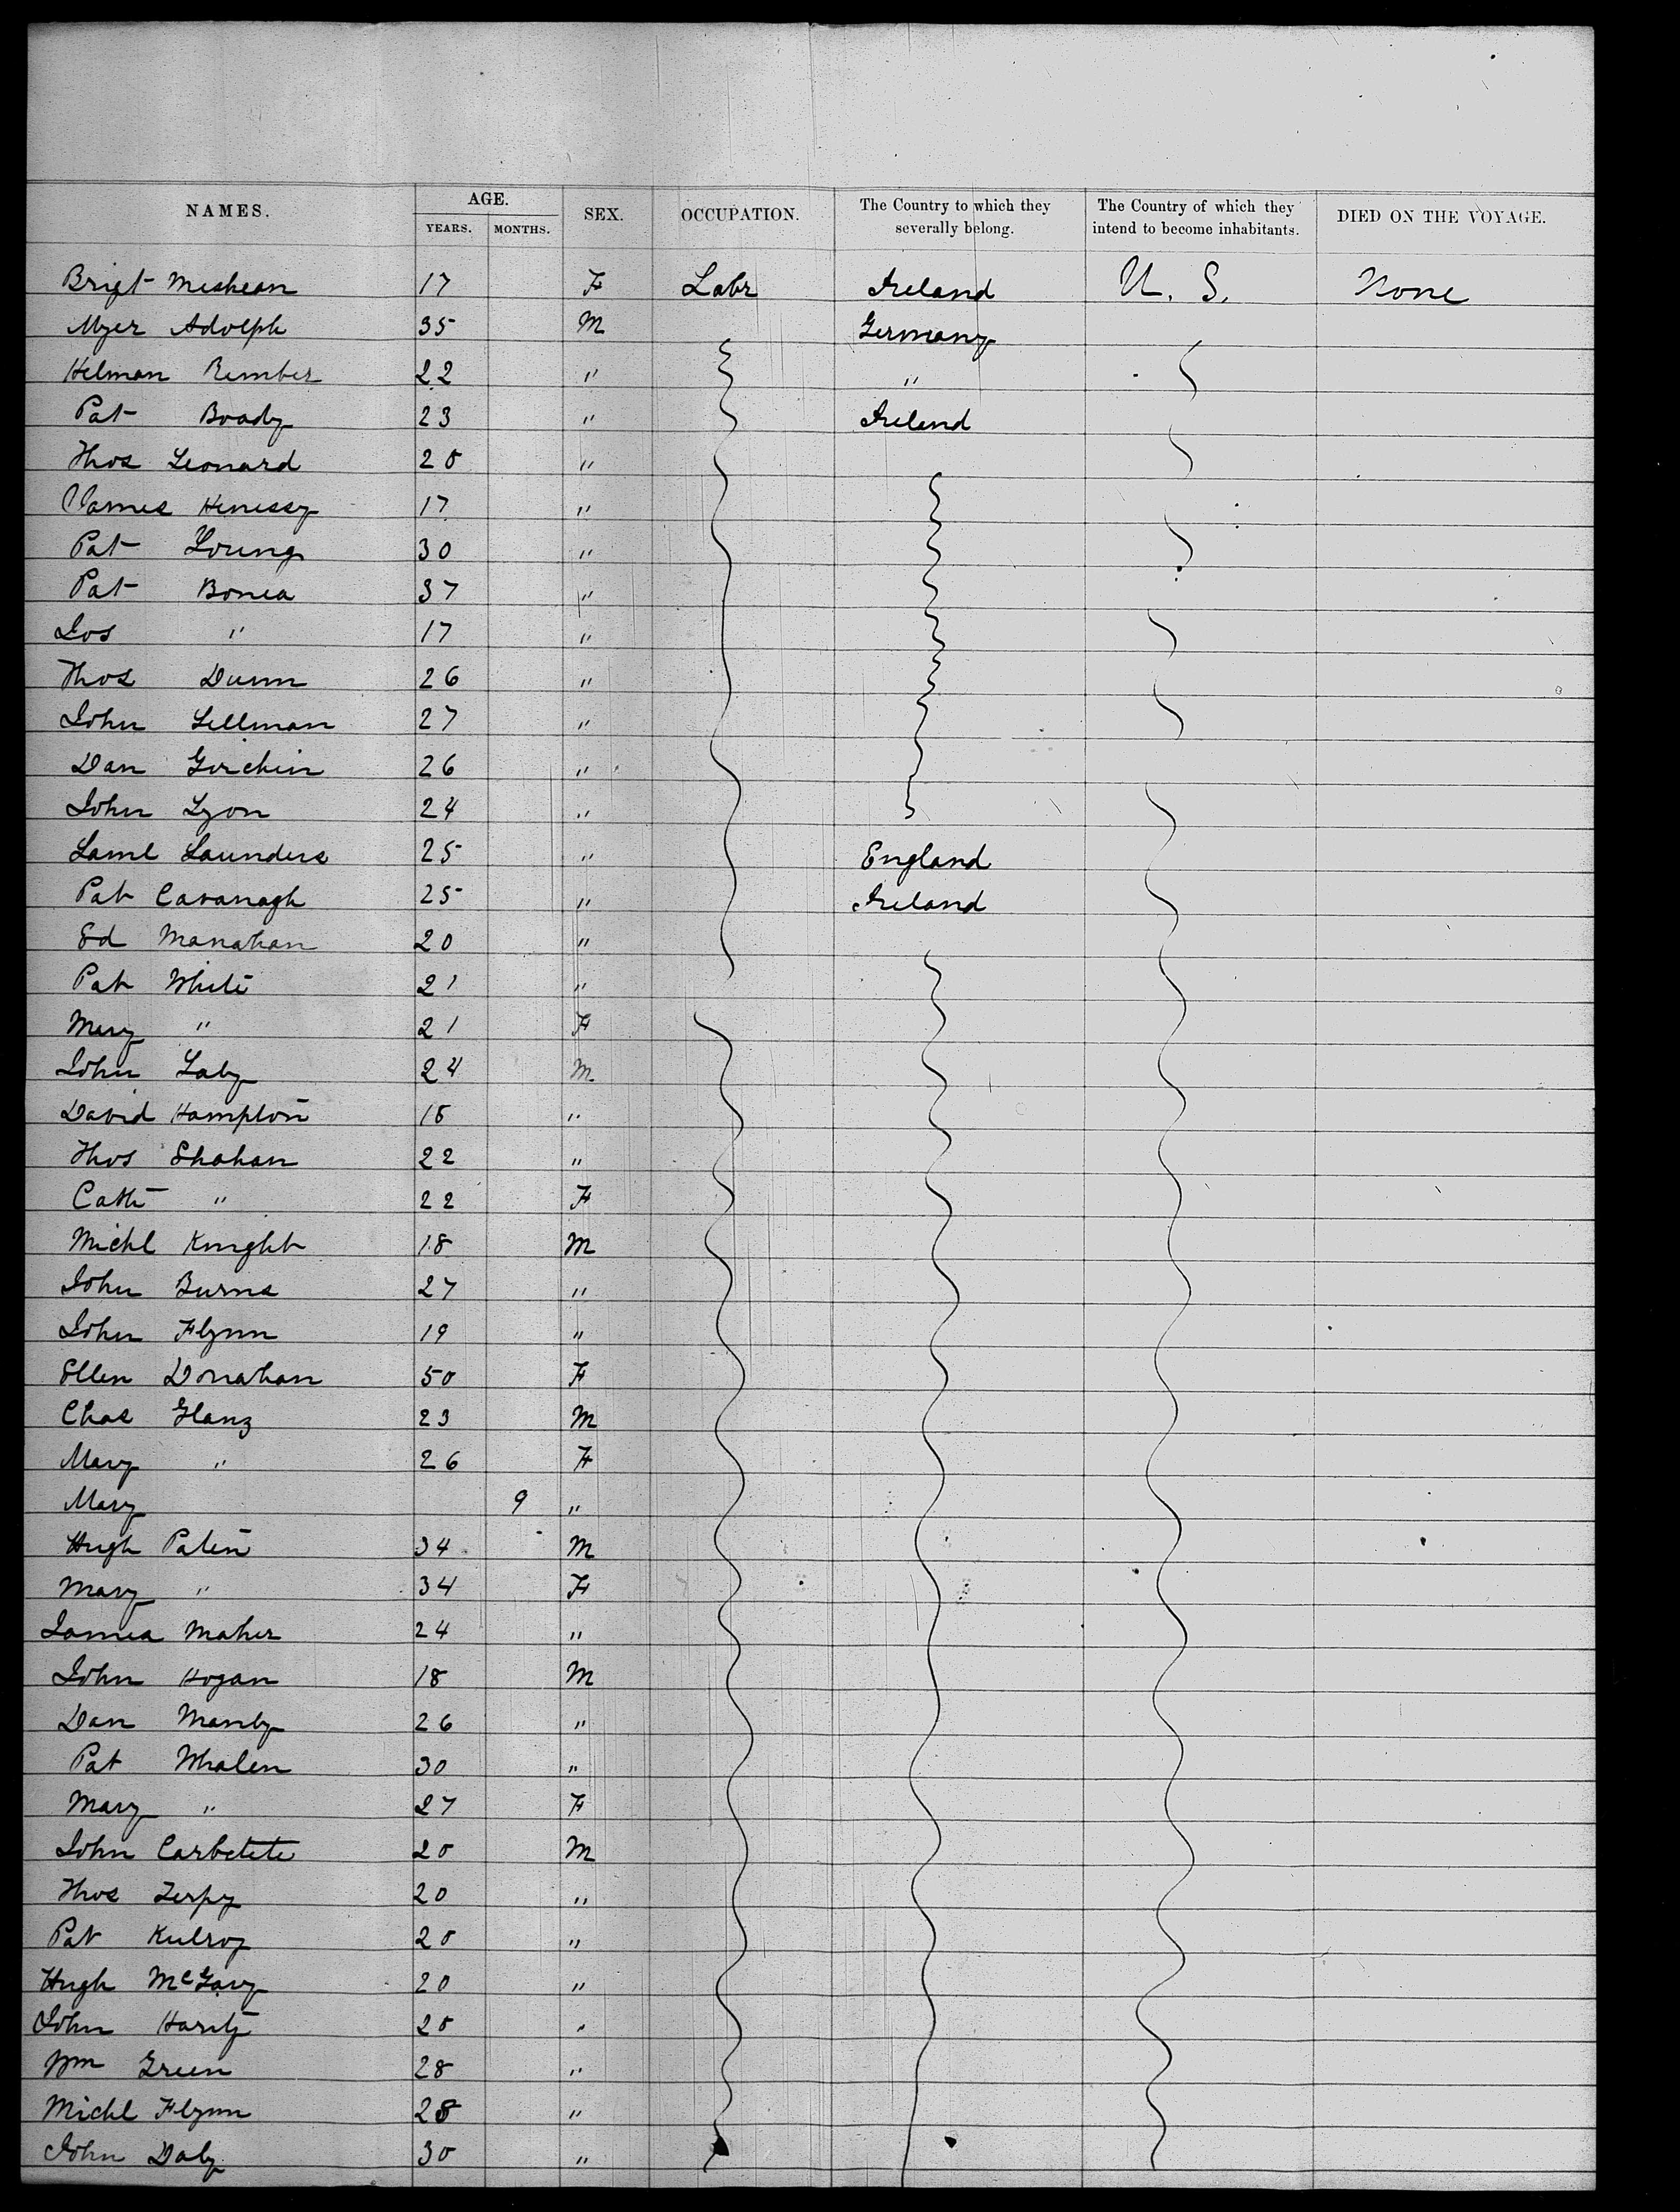 NAMES. AGE. SEX. OCCUPATION. The Country to which they severally belong. The Country of which they intend to become inhabitants. DIED ON THE VOYAGE.
YEARS. MONTHS.
Brigt Meshean 17 F Labr Ireland U. S. None
Myer Adolph 35 M Germany
Helman Rember 22 " "
Pat Boady 23 " Ireland
Thos Leonard 20 "
James Henessy 17 "
Pat Young 30 "
Pat Bonea 37 "
Jos " 17 "
Thos Dunn 26 "
John Sellman 27 "
Dan Gorchin 26 "
John Lyon 24 "
Saml Saunders 25 " England
Pat Cavanagh 25 " Ireland
Ed Manahan 20 "
Pat White 21 "
Mary " 21 F
John Laby 24 M
David Hampton 18 "
Thos Shahan 22 "
Cath " 22 F
Michl Knight 18 M
John Burns 27 "
John Flynn 19 "
Ellen Donahan 50 F
Chas Glanz 23 M
Mary " 26 F
Mary 9 "
Hugh Paten 34 M
Mary " 34 F
Maher 24 "
John Hogan 18 M
Dan Manly 26 "
Pat Whalen 30 "
Mary " 27 F
John Carbetete 20 M
Thos 20 "
Pat Kulroy 20 "
Hugh McGary 20 "
John 20 "
Wm Green 28 "
Michl Flynn 28 "
John Daly 30 "